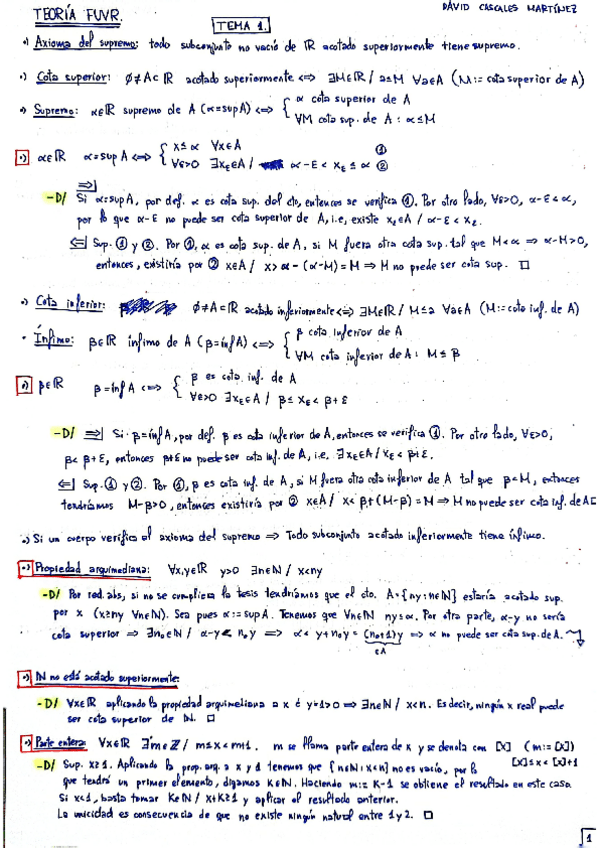 TEORÍA FUVR.
DAVID CASCALES MARTÍNEZ
TEMA 1.
•) Axioma del supremo: todo subconjunto no vacío de ℝ acotado superiormente tiene supremo.
•) Cota superior: ∅≠A⊂ℝ acotado superiormente ⟺ ∃M∈ℝ / a≤M ∀a∈A (M:= cota superior de A)
•) Supremo: α∈ℝ supremo de A (α=supA) ⟺ { α cota superior de A
∀M cota sup. de A : α≤M
•) α∈ℝ α=supA ⟺ { x≤α ∀x∈A ①
∀ε>0 ∃xε∈A / α-ε < xε ≤ α ②
-D/ ⇒| Si α=supA, por def. α es cota sup. del cto, entonces se verifica ①. Por otro lado, ∀ε>0, α-ε<α,
por lo que α-ε no puede ser cota superior de A, i.e, existe xε∈A / α-ε < xε.
⇐| Sup. ① y ②. Por ①, α es cota sup. de A, si M fuera otra cota sup. tal que M<α ⇒ α-M>0,
entonces, existiría por ② x∈A / x> α-(α-M)=M ⇒ M no puede ser cota sup. □
•) Cota inferior: ∅≠A⊂ℝ acotado inferiormente ⟺ ∃M∈ℝ / M≤a ∀a∈A (M:= cota inf. de A)
• Ínfimo: β∈ℝ ínfimo de A (β=infA) ⟺ { β cota inferior de A
∀M cota inferior de A: M≤β
•) β∈ℝ β=infA ⟺ { β es cota inf. de A
∀ε>0 ∃xε∈A / β≤xε<β+ε
-D/ ⇒| Si β=infA, por def. β es cota inferior de A, entonces se verifica ①. Por otro lado, ∀ε>0,
β<β+ε, entonces β+ε no puede ser cota inf. de A, i.e. ∃xε∈A / xε<β+ε.
⇐| Sup. ① y ②. Por ①, β es cota inf. de A, si M fuera otra cota inferior de A tal que β<M, entonces
tendríamos M-β>0, entonces existiría por ② x∈A / x<β+(M-β)=M ⇒ M no puede ser cota inf. de A□
•) Si un cuerpo verifica el axioma del supremo ⇒ Todo subconjunto acotado inferiormente tiene ínfimo.
•) Propiedad arquimediana: ∀x,y∈ℝ y>0 ∃n∈ℕ / x<ny
-D/ Por red. abs, si no se cumpliera la tesis tendríamos que el cto. A={ny:n∈ℕ} estaría acotado sup.
por x (x≥ny ∀n∈ℕ). Sea pues α:=supA. Tenemos que ∀n∈ℕ ny≤α. Por otra parte, α-y no sería
cota superior ⇒ ∃n₀∈ℕ / α-y< n₀y ⇒ α< y+n₀y = (n₀+1)y ⇒ α no puede ser cota sup. de A.
∈A
•) ℕ no está acotado superiormente:
-D/ ∀x∈ℝ aplicando la propiedad arquimediana a x e y=1>0 ⇒ ∃n∈ℕ / x<n. Es decir, ningún x real puede
ser cota superior de ℕ. □
•) Parte entera: ∀x∈ℝ ∃!m∈ℤ / m≤x<m+1. m se llama parte entera de x y se denota con [x] (m:=[x])
[x]≤x<[x]+1
-D/ Sup. x≥1. Aplicando la prop. arq. a x y 1 tenemos que {n∈ℕ: x<n} no es vacío, por lo
que tendrá un primer elemento, digamos K∈ℕ. Haciendo m:= K-1 se obtiene el resultado en este caso.
Si x<1, basta tomar K∈ℕ / x+K≥1 y aplicar el resultado anterior.
La unicidad es consecuencia de que no existe ningún natural entre 1 y 2. □
1